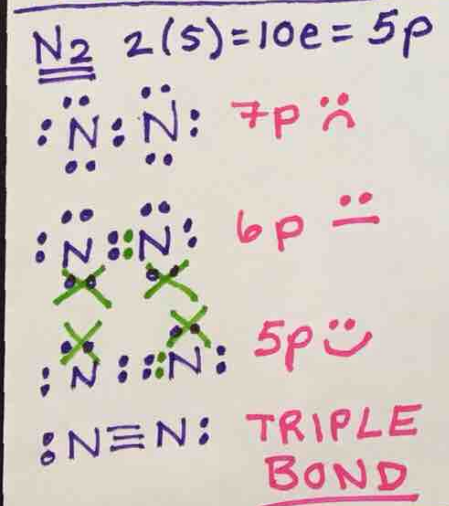 N2 2(5)=10e=5p
:N:N: 7p
:N::N: 6p
:N:::N: 5p
:N≡N: TRIPLE
BOND